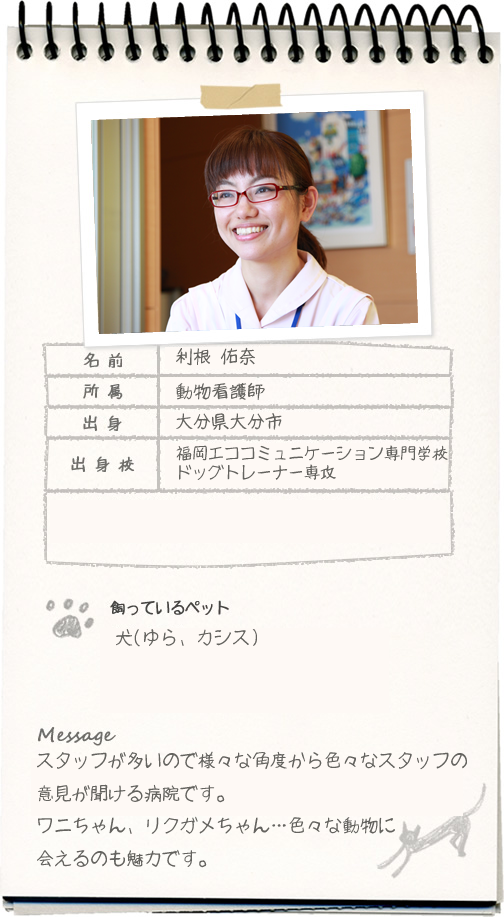 名前 利根 佑奈
所属 動物看護師
出身 大分県大分市
出身校 福岡エココミュニケーション専門学校
ドッグトレーナー専攻
飼っているペット
犬(ゆら、カシス)
Message
スタッフが多いので様々な角度から色々なスタッフの
意見が聞ける病院です。
ワニちゃん、リクガメちゃん…色々な動物に
会えるのも魅力です。